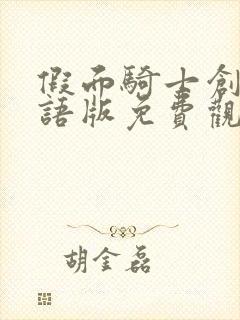 假面騎士創
語版免費觀
胡金磊